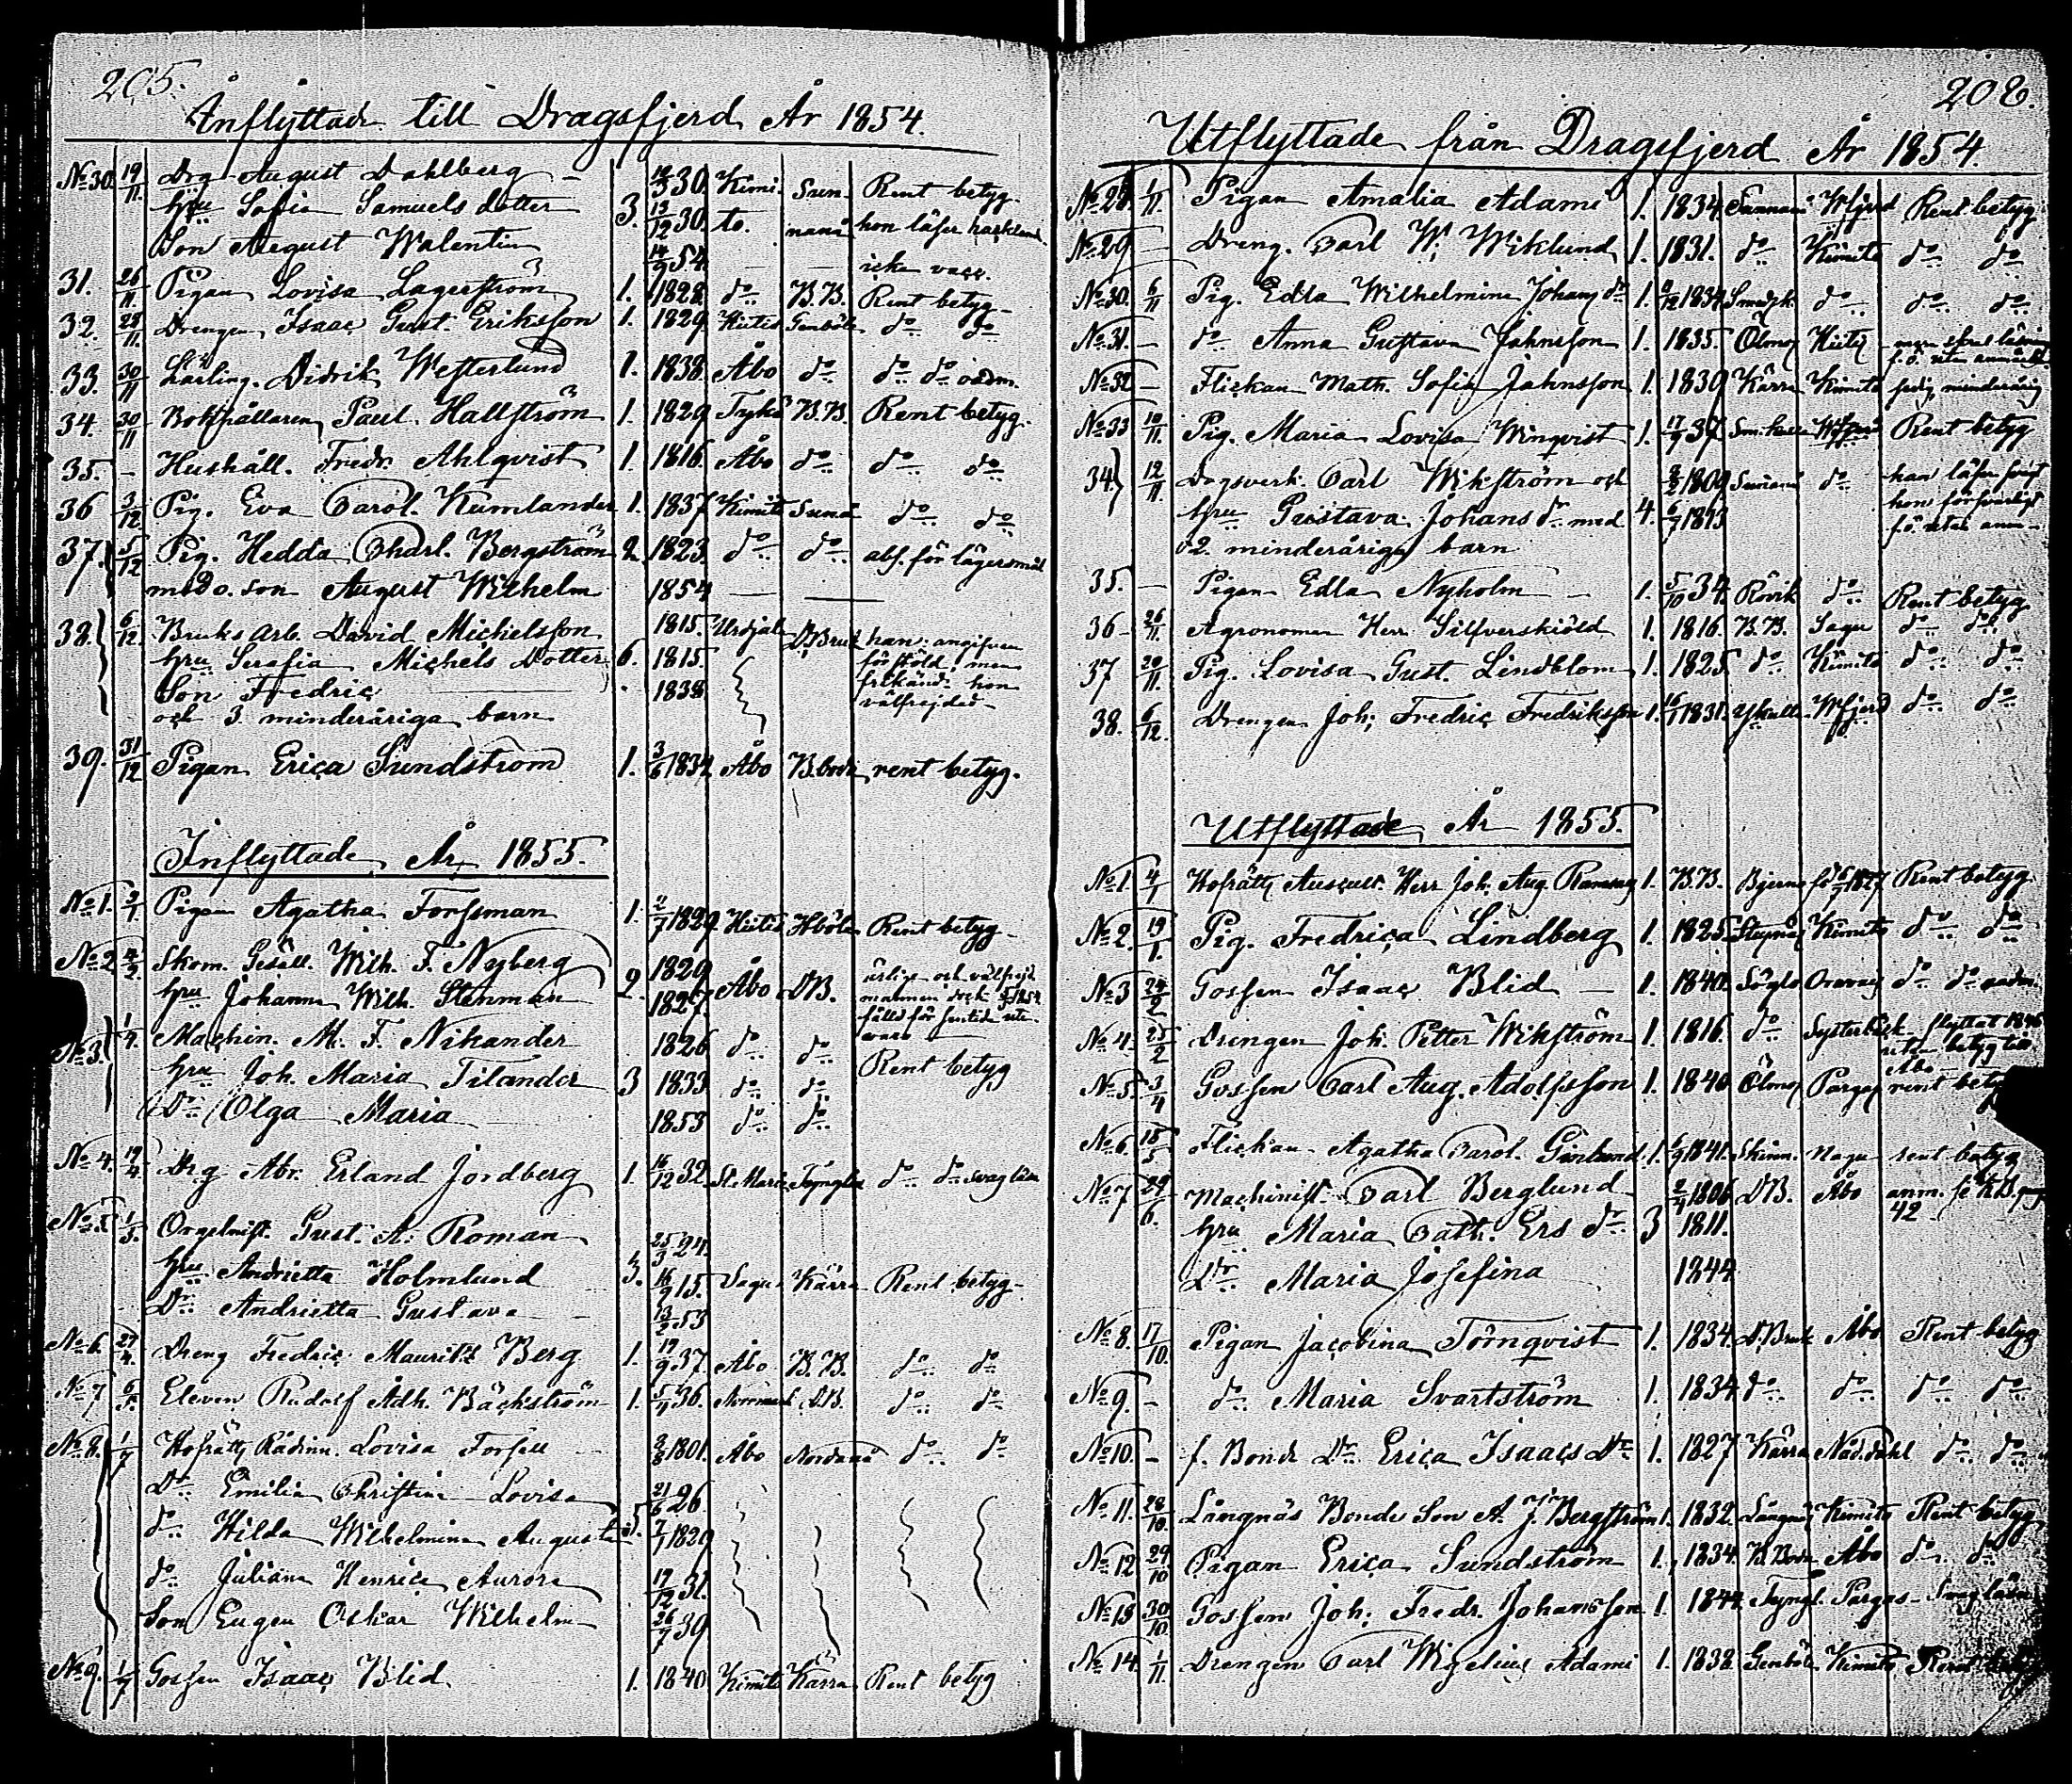 205.
Inflyttade till Dragsfjerd År 1854.
No 30. 19/11. Drg August Dahlberg 30. Kimi- Sun- Rent betyg.
Hu Sofia Samuels dotter 3. 13/12 30. to. nanå hon läser
Son August Walentin 14/9 54. icke vacc.
31. 26/11. Pigan Lovisa Lagerström 1. 1828. do B.B. Rent betyg
32. 28/11. Drengen Isaac Gust. Eriksson 1. 1829. Hitis Genböle do do
33. 30/11 Lärling. Didrik Westerlund 1. 1838. Åbo do do do oadm.
34. 30/11 Bokhållaren Paul Hallström 1. 1829 Tykö B.B. Rent betyg.
35. – Hushåll. Fredr. Ahlqvist 1. 1816. Åbo do do do
36 3/12 Pig. Eva Carol. Kumlander 1. 1837 Kimito Sunnå do do
37. 5/12 Pig. Hedda Charl. Bergström 2. 1823. do do abs. för lägersmål
med o. son August Wilhelm 1854
38. 6/12. Bruks arb. David Michelsson 1815. Urdjala D.Bruk han angifven
Hu Serafia Michels Dotter 6. 1815. för stöld men
Son Fredric 1838 frikänd. hon
och 3 minderåriga barn välfrejdad
39. 31/12 Pigan Erica Sundström 1. 3/6 1834 Åbo B.boda rent betyg.
Inflyttade År 1855.
No 1. 2/1 Pigan Agatha Forssman 1. 2/7 1829 Hitis Hböle Rent betyg
No 2 4/2 Skom. Gesäll. Wilh. F. Nyberg 1829 ärlig och välfrejd
Hu Johanna Wilh. Stenman 2. 1827. Åbo DB. mannen dock
fälld för
No 3. 1/4 Machin. M. F. Nikander 1826 do do
Hu Joh. Maria Tilander 3 1833 do do Rent betyg
Dr Olga Maria 1853 do do
No 4. 19/4 Drg Abr. Erland Jordberg 1. 16/12 32. St. Marie do do svag läs
No 5. 1/5. Orgelnist. Gust. A. Roman 25/3 24.
Hu Andrietta Holmlund 3. 16/9 15. Sagu Kärra Rent betyg
Dr Andrietta Gustava 13/2 53
No 6. 27/4. Dreng Fredric Mauritz Berg 1. 19/9 37. Åbo B.B. do do
No 7 6/5. Eleven Rudolf Adh. Bäckström 1. 5/4 36. DB. do do
No 8. 1/7 Hofrätts Rådinn. Lovisa Forsell 3/8 1801. Åbo Nordanå do do
Dr Emilia Christina Lovisa 21/6 26.
do Hilda Wilhelmina Augusta 5. 7/1 1829
do Juliana Henrica Aurora 19/12 31.
Son Eugen Oskar Wilhelm 26/7 39
No 9. 1/7 Gossen Isaac Blid 1. 1840. Kimito Kärra Rent betyg
208.
Utflyttade från Dragsfjerd År 1854.
No 28 1/11. Pigan Amalia Adami 1. 1834 Sunnanå Wfjerd Rent betyg
No 29 – Dreng. Carl W. Wiklund 1. 1831. do Kimito do do
No 30. 6/11 Pig. Edla Wilhelmina Johans dr 1. 1834 do do do
No 31. – do Anna Gustava Johnsson 1. 1835. Ölmos Hitis
No 32 – Flickan Math. Sofia Johnsson 1. 1839 Kärra Kimito minderårig
No 33 10/11. Pig. Maria Lovisa Winqvist 1. 17/9 37. Rent betyg
34. 12/11. Dagsverk. Carl Wikström och 1809 Sunnanå do han läser
Hu Gustava Johans dr med 4. 6/7 1813 hon försvarligt
o 2. minderåriga barn
35. – Pigan Edla Nyholm 1. 5/10 34. Rövik do Rent betyg
36 – 26/11. Agronomen Herr Silfverskiöld 1. 1816. B.B. Sagu do do
37 29/11. Pig. Lovisa Gust. Lindblom 1. 1825. do Kimito do do
38. 6/12. Drengen Joh. Fredric Fredriksson 1. 1831. Wfjerd do do
Utflyttade År 1855.
No 1 4/1 Hofrätts Auscult. Herr Joh. Aug. Ramsay 1. B.B. Bjerno 1827 Rent betyg
No 2. 19/1. Pig. Fredrica Lindberg 1. 1825. Kimito do do
No 3 24/2 Gossen Isaac Blid 1. 1840. Söglo do do oadm.
No 4. 25/2 Drengen Joh. Petter Wikström 1. 1816. do Systerbäck flyttat 1846
utan betyg till
Åbo
No 5. 3/4 Gossen Carl Aug. Adolfsson 1. 1840. Ölmos Pargas rent betyg
No 6. 15/5 Flickan Agatha Carol. Ginlund 1. 1841. Skinn. Nagu rent betyg
No 7 29/6. Machinist. Carl Berglund 1806. DB. Åbo anm. se KB. pag
42
Hu Maria Cath. Ers dr 3 1811.
Dr Maria Josefina 1844
No 8. 17/10. Pigan Jacobina Törnqvist 1. 1834. D.Bruk Åbo Rent betyg
No 9. – do Maria Svartström 1. 1834. do do do do
No 10. – f. Bonde Dr Erica Isaacs Dr 1. 1827 Kärra Nåd.dahl do do
No 11. 28/10. Långnäs Bonde Son A. J. Bergström 1. 1832. Långnäs Kimito Rent betyg
No 12 29/10 Pigan Erica Sundström 1. 1834. B.Boda Åbo do do
No 13 30/10 Gossen Joh. Fredr. Johansson 1. 1844. Tyngl. Pargas Svag läsn.
No 14. 1/11. Drengen Carl Wigelius Adami 1. 1838. Genböle Kimito Rent betyg